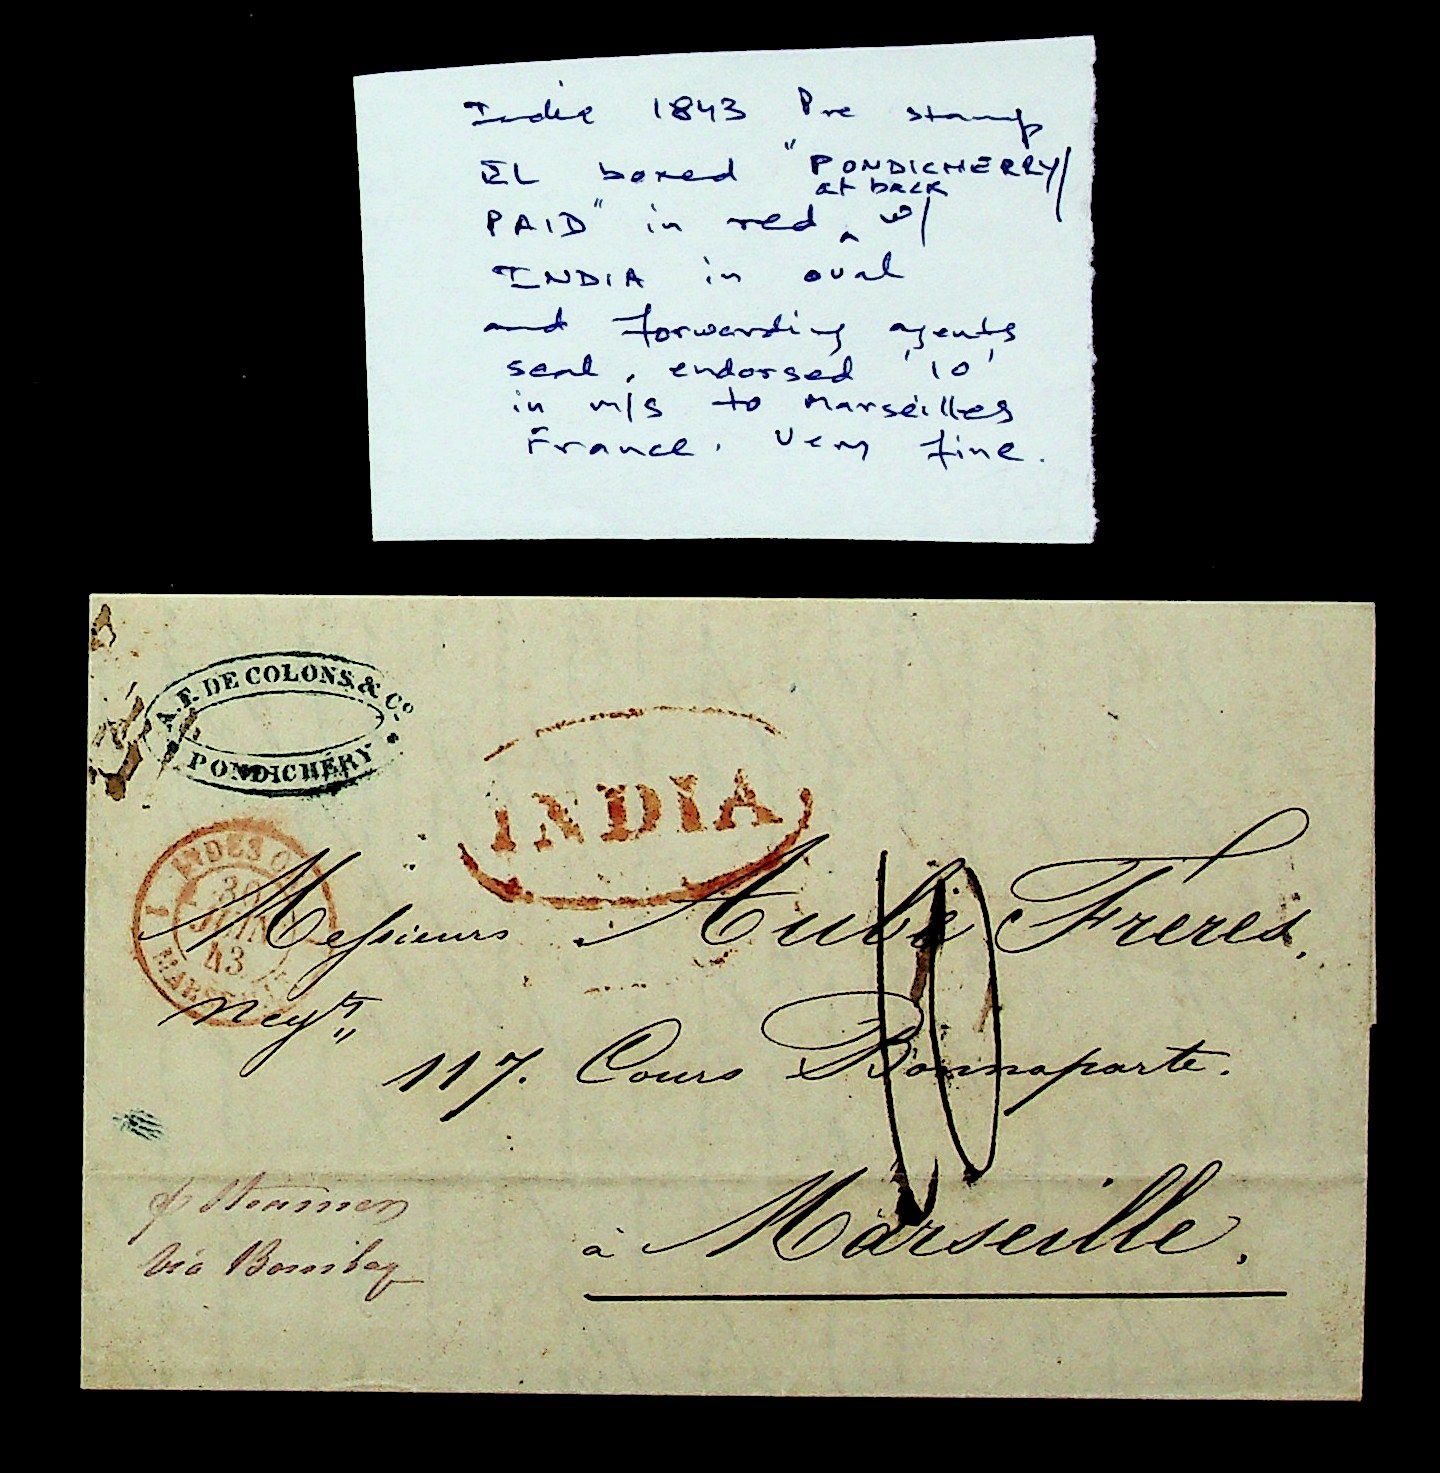 India 1843 Pre stamp
EL boxed "PONDICHERRY/
at back
PAID" in red ^ w/
INDIA in oval
and forwarding agents
seal, endorsed '10'
in m/s to Marseilles
France. Very fine.
A.F. DE COLONS & Co.
PONDICHÉRY
INDIA
INDES O.
30
JUIN
43
MARSEILLE
Messieurs Aubé Frères,
Negts
117. Cours Bonnaparte.
10
à Marseille.
p steamer
via Bombay